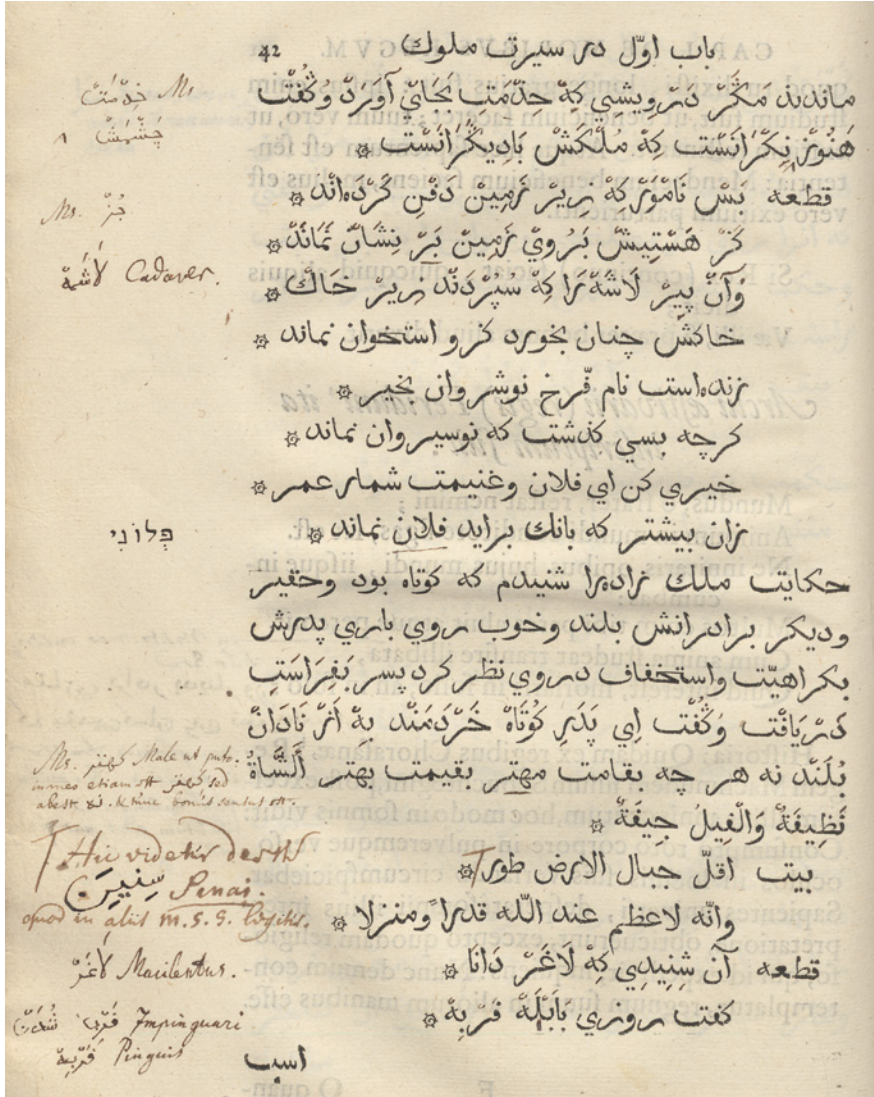 42
باب اوّل در سيرت ملوك
ماندند مَكَرْ دَرْوِيشِي كِهْ خِدْمَتْ بَجَايْ آوَرَدْ وَكُفْتْ
هَنُوزْ نِكَرَانَسْت كِهْ مُلْكَشْ بَادِيكَرَانَسْت
قطعه بَسْ نَامْوَرْ كِهْ زِيرْ زَمِينْ دَفْنِ كَرْدَه‌انْد
كَزْ هَسْتِيشْ بَرُويْ زَمِينْ بَرْ نِشَانْ نَمَانْدْ
وَآنْ پِيرْ لَاشَهْ رَا كِهْ سُپُرْدَنْد زِيرْ خَاكْ
خاكش چنان بخورد كزو استخوان نماند
زنده‌است نام فرّخ نوشروان بخير
كرچه بسي كذشت كه نوسيروان نماند
خيري كن اي فلان وغنيمت شمار عمر
زان بيشتر كه بانك برايد فلان نماند
حكايت ملك زاده‌را شنيدم كه كوتاه بود وحقير
وديكر برادرانش بلند وخوب روي باري پدرش
بكراهيّت واستخفاف دروي نظر كرد پسر بَفِرَاسَتِ
دَرْيَافْت وَكُفْت اِي پَدَرِ كُوتَاهْ خَرْدَمَنْد بِهْ اَزْ نَادَانْ
بُلَنْد نه هر چه بقامت مهتر بقيمت بهتر اَلشَّاةُ
نَظِيفَةٌ وَالْفِيلُ جِيفَةٌ
بيت اقلّ جبال الارض طور
وانّه لاعظم عند اللّه قدرا ومنزلا
قطعه آنْ شِنِيدِي كِهْ لَاغَرْ دَانَا
كفت روزي بَابْلَهْ فَرْبِهْ
اسب
Ms. خِدْمَتْ
^ چَشْمَشْ
Ms. جُزْ
لَاشَهْ Cadaver.
פְּלוֹנִי
Ms. كهتر Male ut puto.
in meo etiam est كهتر sed
abest نه. & tunc bonus sensus est.
Hic videtur deesse
سِنِينَ Senai.
quod in aliis m.s.s. legitur.
لَاغَرْ Macilentus.
فَرْبَه شُدَنْ Impinguari
فَرْبِهْ Pinguis